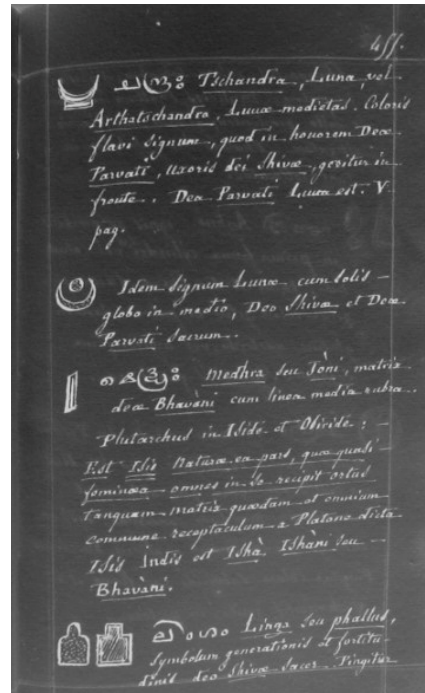 455.
ചന്ദ്രഃ Tschandra, Luna, vel
Arthatschandra, Lunæ medietas. Coloris
flavi signum, quod in honorem Deæ
Parvati, Uxoris dei Shivæ, geritur in
fronte. Dea Parvati Luna est. V
pag.
Idem signum Lunæ cum solis
globo in medio, Deo Shivæ et Deæ
Parvati sacrum.
Medhra seu Joni, matrix
deæ Bhavàni cum linea media rubra.
Plutarchus in Iside et Osiride:
Est Isis Naturæ ea pars, quæ quasi
fœminæa omnes in se recipit ortus
tanquam matrix quædam et omnium
commune receptaculum a Platone dicta
Isis Indis est Ishà Ishàni seu
Bhavàni.
ലിംഗം Linga seu phallus,
symbolum generationis et fortitu-
dinis deo Shivæ sacer. Pingitur